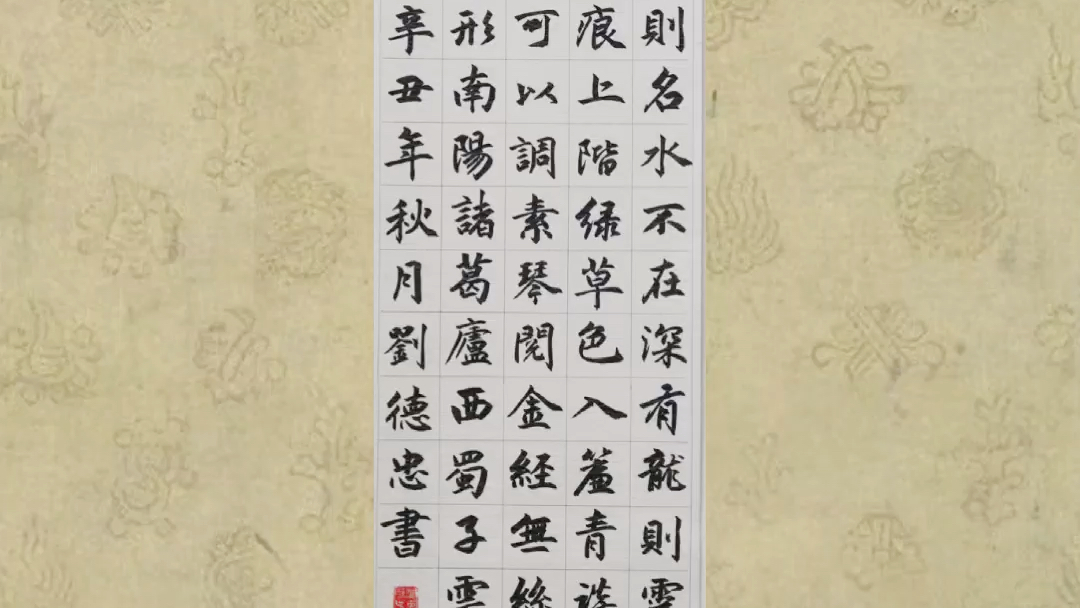 則名水不在深有龍則靈
痕上階绿草色入簾青談
可以調素琴閱金經無絲
形南陽諸葛廬西蜀子雲
辛丑年秋月劉德忠書